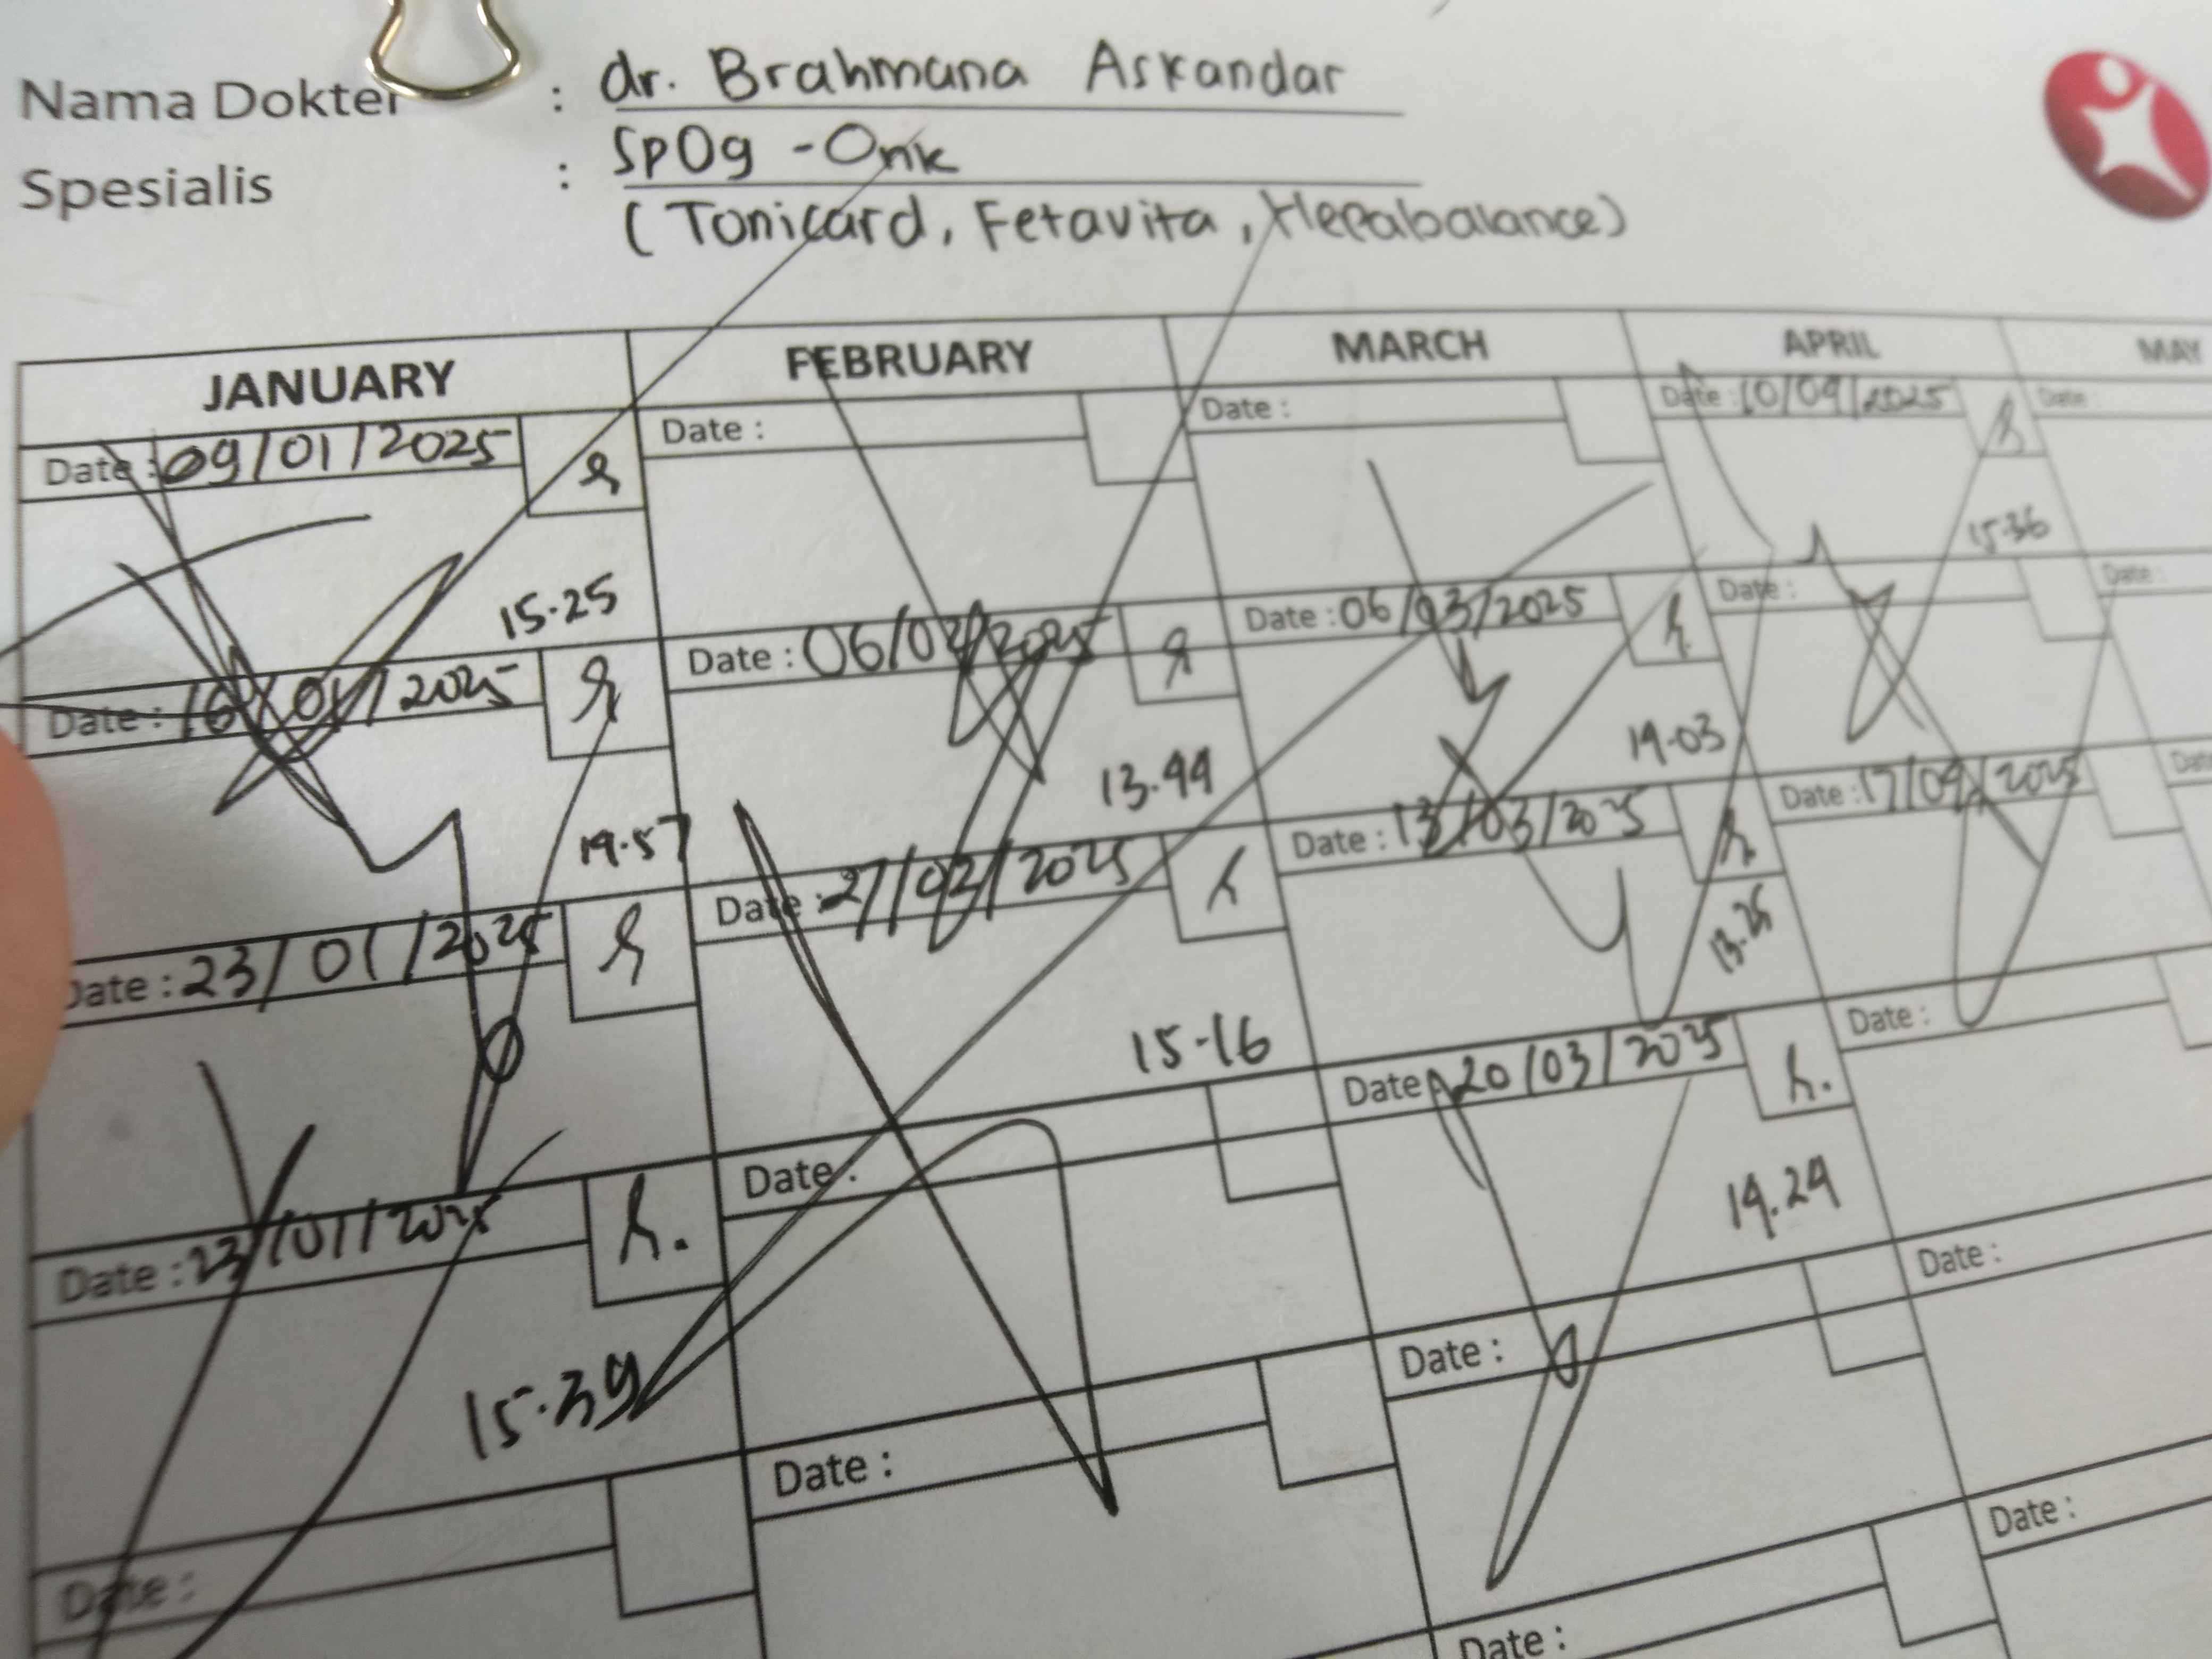 Nama Dokter : dr. Brahmana Askandar
Spesialis : SpOg - Onk
(Tonicard, Fetavita, Hepabalance)
JANUARY FEBRUARY MARCH APRIL MAY
Date : 09/01/2025
15.25
Date : 16/01/2025
19.57
Date : 23/01/2025
Date : 23/01/2025
15.39
Date :
Date :
Date : 06/02/2025
13.44
Date : 27/02/2025
15.16
Date :
Date :
Date :
Date : 06/03/2025
14.03
Date : 13/03/2025
13.25
Date : 20/03/2025
14.24
Date :
Date :
Date : 10/04/2025
15.36
Date :
Date : 17/04/2025
Date :
Date :
Date :
Date :
Date :
Date